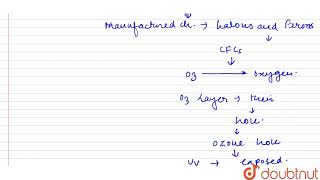 ↓
Manufactured ch. → halons and Freons
↓
CFCs
↓
O3 → oxygen.
O3 layer → thin
↓
hole.
↓
ozone hole
↓
UV → exposed.
doubtnut